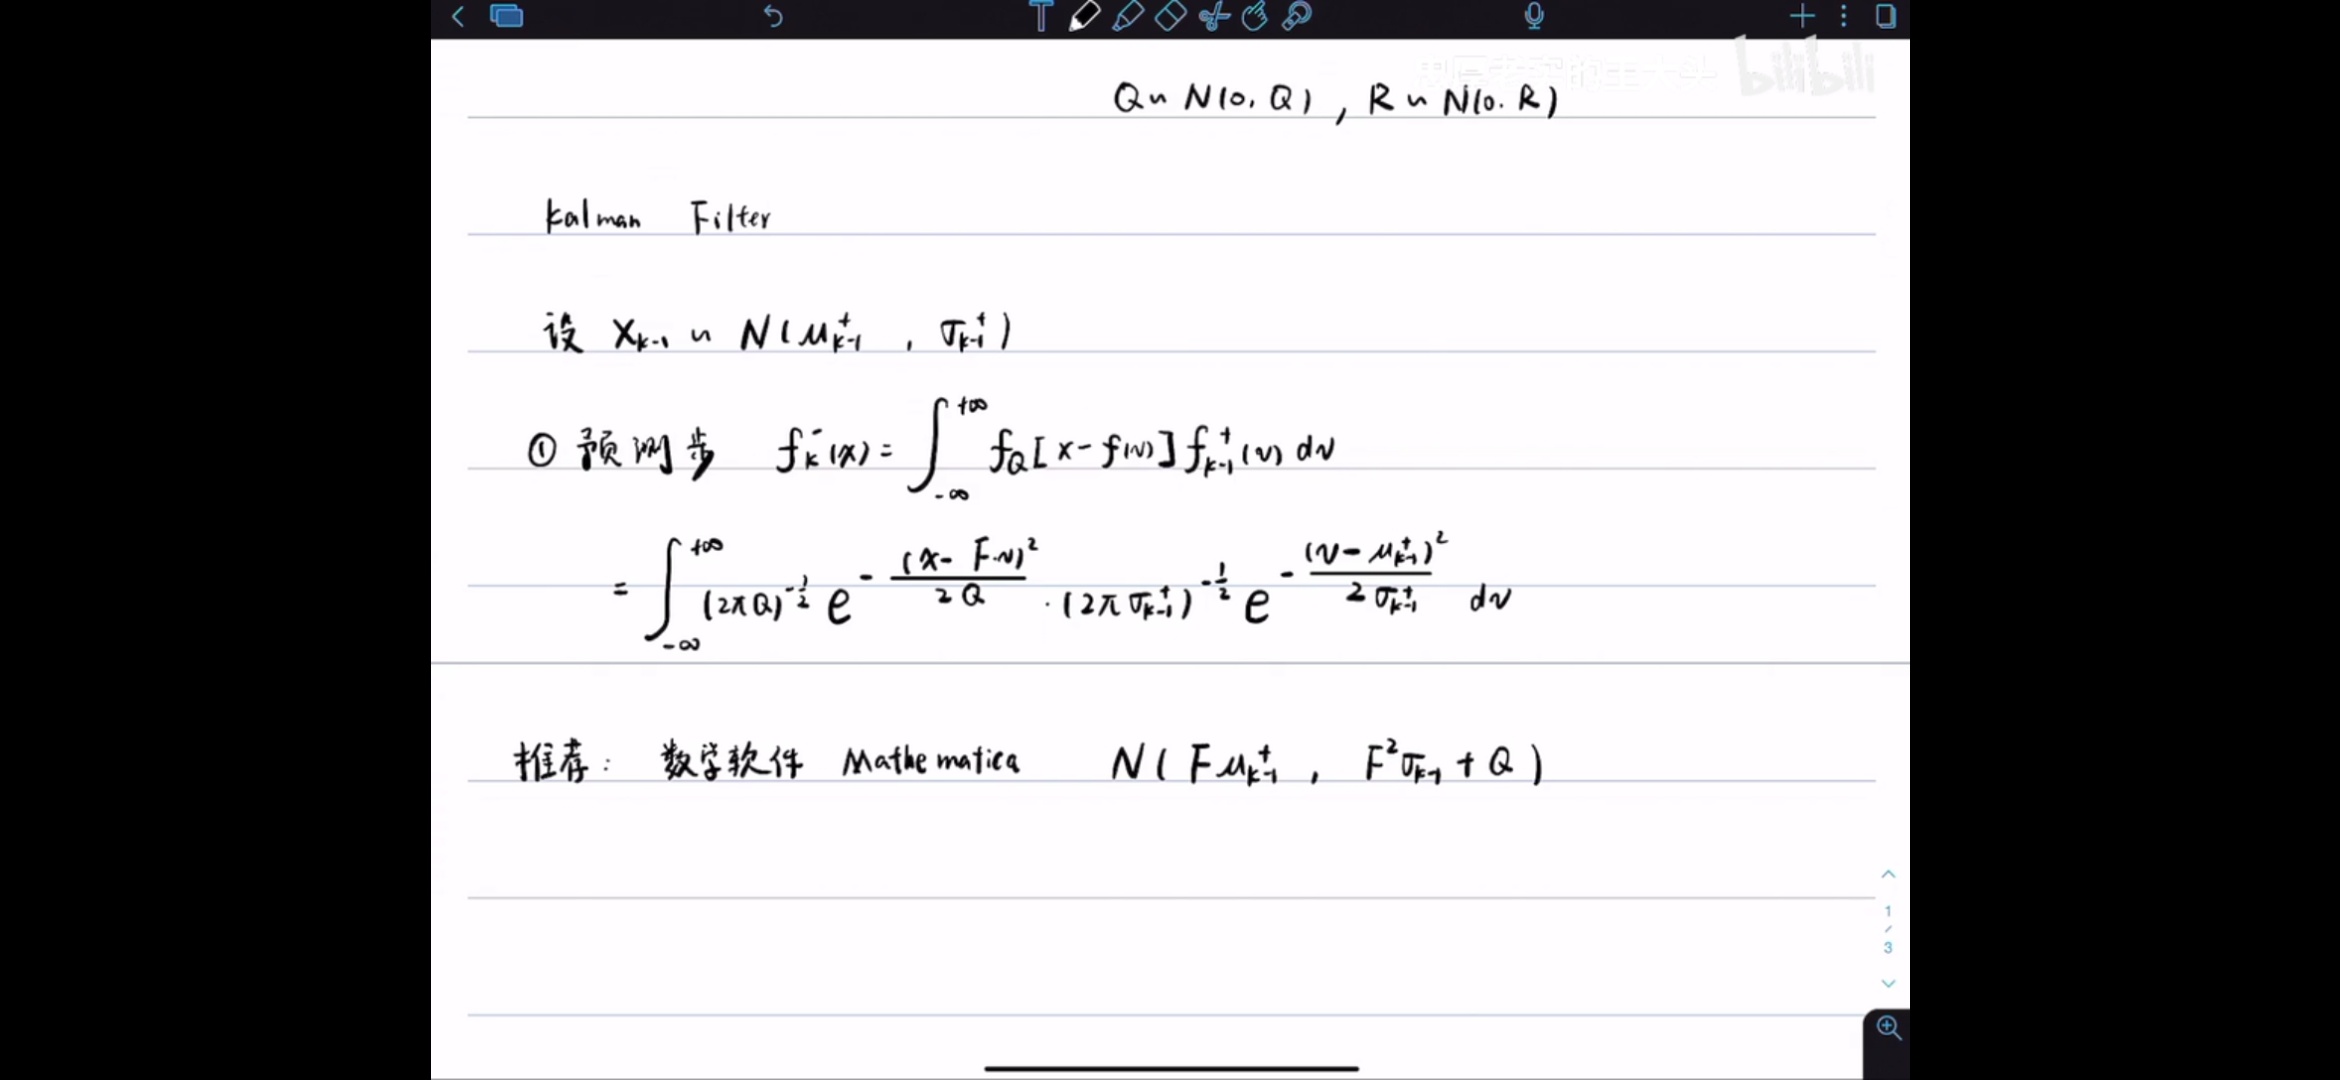 bilibili
Q ~ N(0, Q) , R ~ N(0. R)
Kalman Filter
设 X_{k-1} ~ N(μ_{k-1}^+ , σ_{k-1}^+)
① 预测步 f_k^-(x) = ∫_{-∞}^{+∞} f_Q[x - f(v)] f_{k-1}^+(v) dv
= ∫_{-∞}^{+∞} (2πQ)^{-1/2} e^{-\frac{(x-F·v)^2}{2Q}} · (2πσ_{k-1}^+)^{-1/2} e^{-\frac{(v-μ_{k-1}^+)^2}{2σ_{k-1}^+}} dv
推荐: 数学软件 Mathematica N(Fμ_{k-1}^+ , F^2σ_{k-1} + Q)
1
/
3